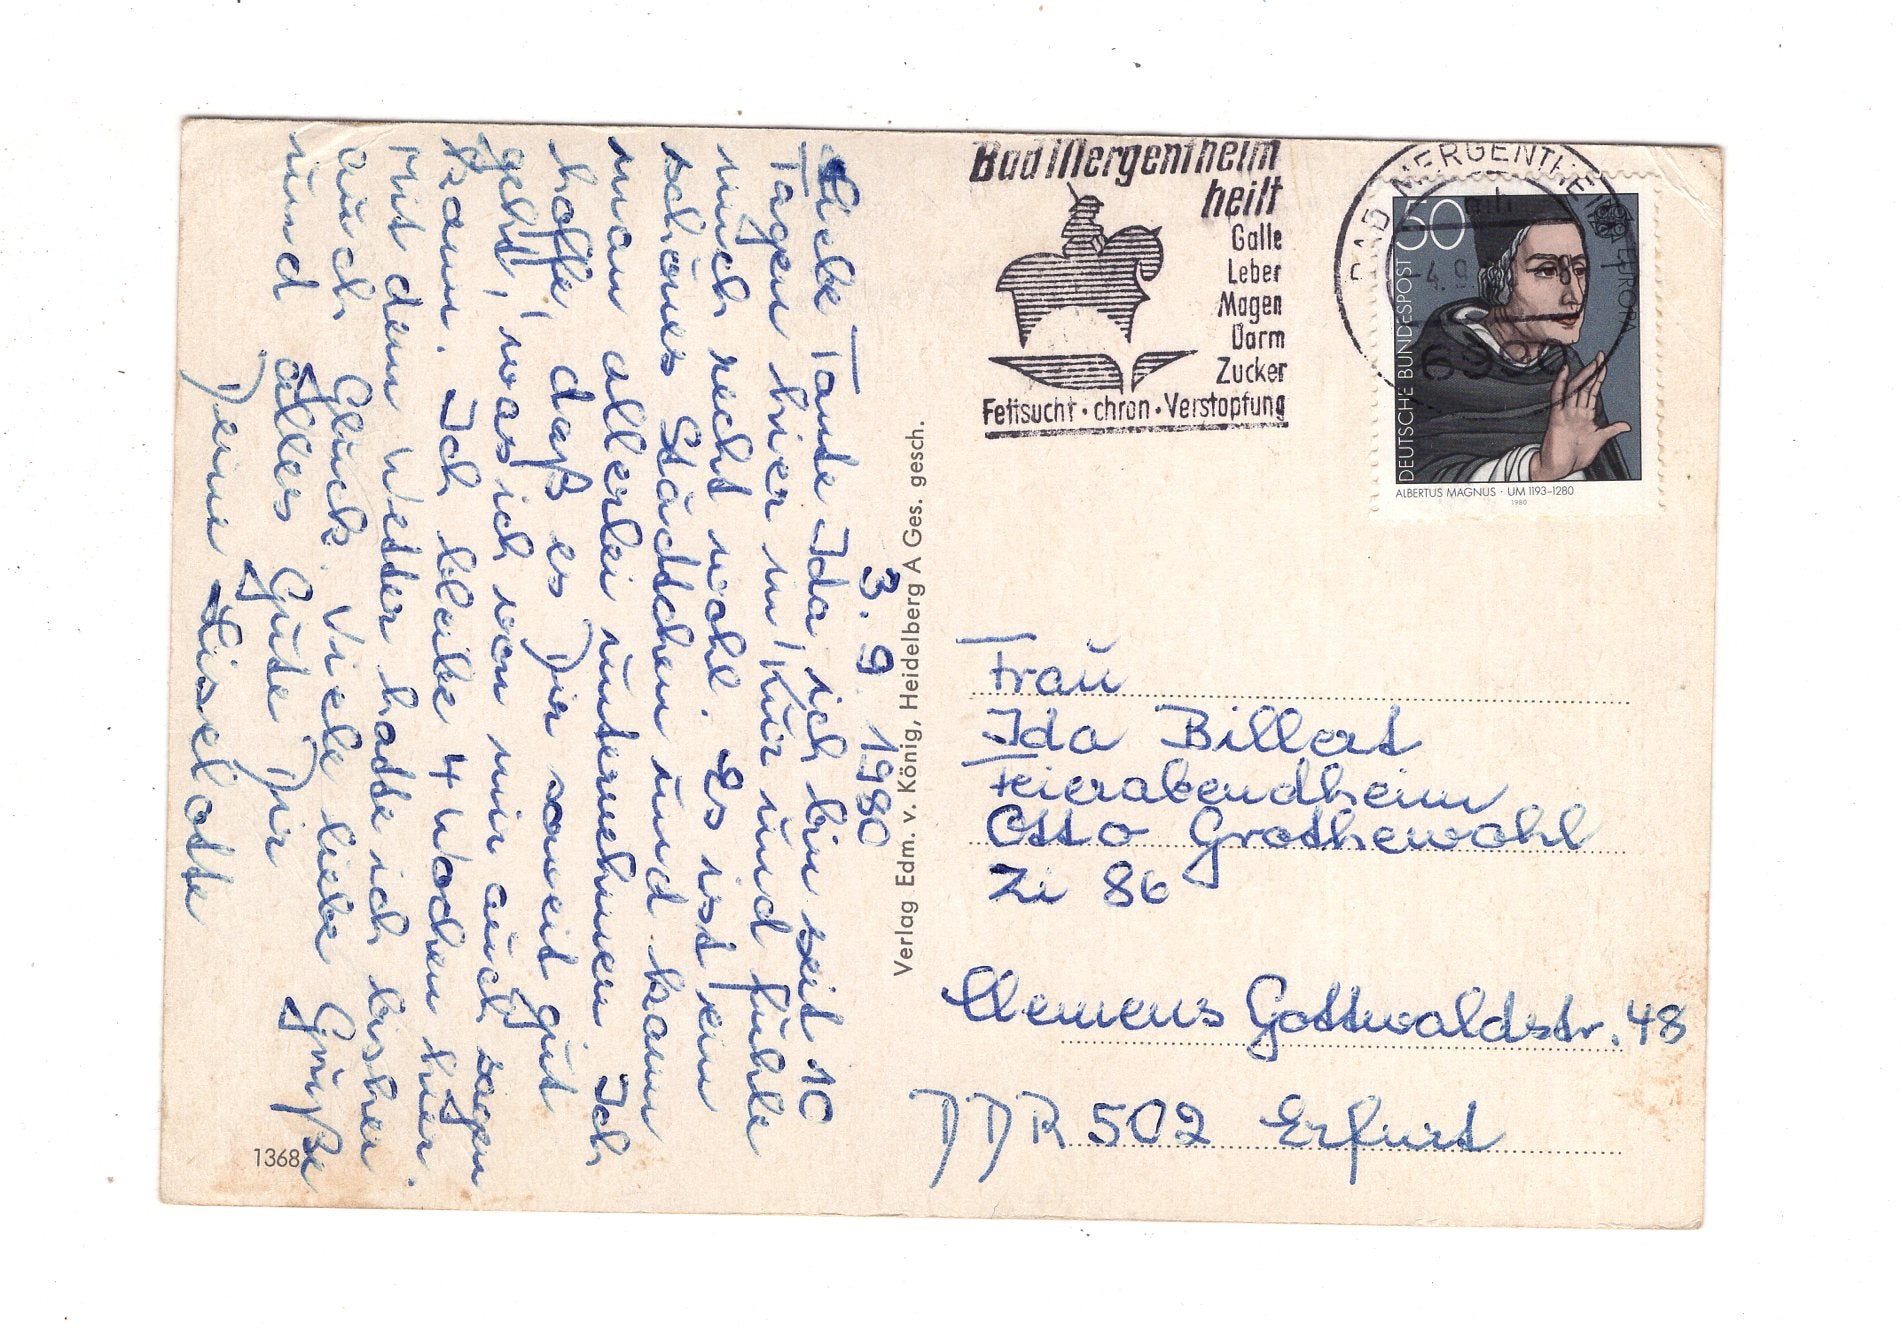 3. 9. 1980
Liebe Tante Ida, ich bin seit 10
Tagen hier in Kur und fühle
mich recht wohl. Es ist ein
schönes Städtchen und kann
man allerlei unternehmen. Ich
hoffe, daß es Dir soweit gut
geht, was ich von mir auch sagen
kann. Ich bleibe 4 Wochen hier.
Mit dem Wetter hatte ich bisher
auch Glück. Viele liebe Grüße
und alles Gute Dir
Deine Liselotte
1368
Verlag Edm. v. König, Heidelberg A Ges. gesch.
Bad Mergentheim
heilt
Galle
Leber
Magen
Darm
Zucker
Fettsucht · chron · Verstopfung
BAD MERGENTHEIM
-4.9.
6990
50
DEUTSCHE BUNDESPOST
EUROPA
ALBERTUS MAGNUS · UM 1193–1280
1980
Frau
Ida Billert
Feierabendheim
Otto Grothewohl
Zi 86
Clemens Gottwaldstr. 48
DDR 502 Erfurt